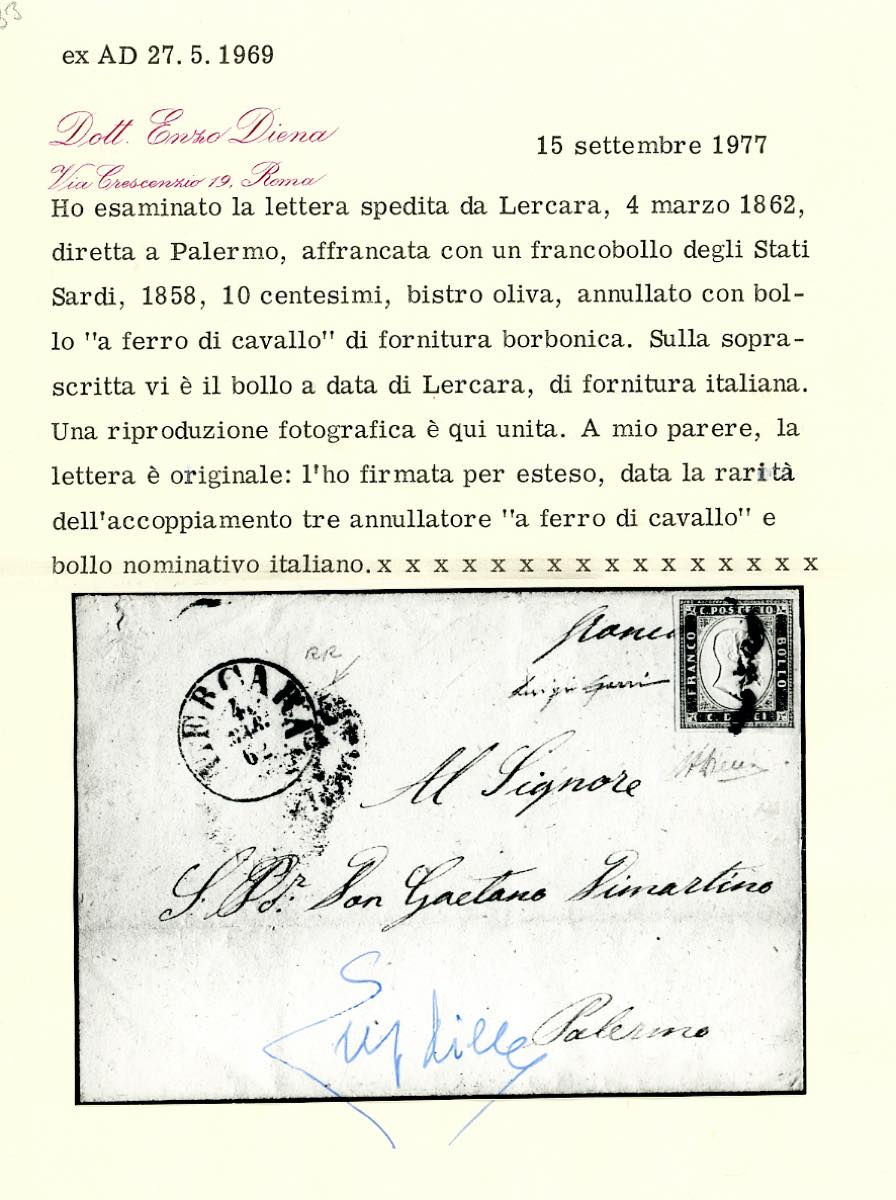 ex AD 27.5.1969
Dott. Enzo Diena
15 settembre 1977
Via Crescenzio 19, Roma
Ho esaminato la lettera spedita da Lercara, 4 marzo 1862,
diretta a Palermo, affrancata con un francobollo degli Stati
Sardi, 1858, 10 centesimi, bistro oliva, annullato con bol-
lo "a ferro di cavallo" di fornitura borbonica. Sulla sopra-
scritta vi è il bollo a data di Lercara, di fornitura italiana.
Una riproduzione fotografica è qui unita. A mio parere, la
lettera è originale: l'ho firmata per esteso, data la rarità
dell'accoppiamento tre annullatore "a ferro di cavallo" e
bollo nominativo italiano. x x x x x x x x x x x x x x x x
C. POSTE 10
FRANCO
BOLLO
C. DIECI
RR
LERCARA
4
MAR
62
Al Signore
Don Gaetano Dimartino
Palermo